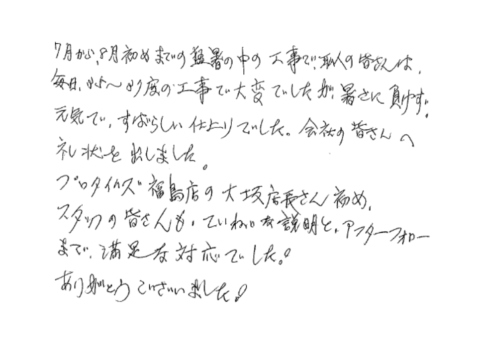 7月から8月初めまでの猛暑の中の工事で、職人の皆さんは、
毎日、35〜37度の工事で大変でしたが、暑さに負けず、
元気で、すばらしい仕上りでした。会社の皆さんへ
礼状を出しました。
プロタイムズ福島店の大坂店長さん初め、
スタッフの皆さんも、ていねいな説明と、アフターフォロー
まで、満足な対応でした。!
ありがとうございました!